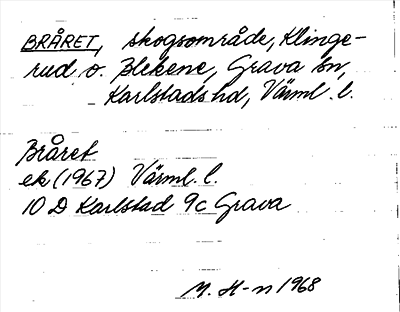 BRÅRET, skogsområde, Klinge-
rud o. Blekene, Grava sn,
Karlstads hd, Värml. l.
Bråret
ek (1967) Värml. l.
10 D Karlstad 9c Grava
M. H-n 1968